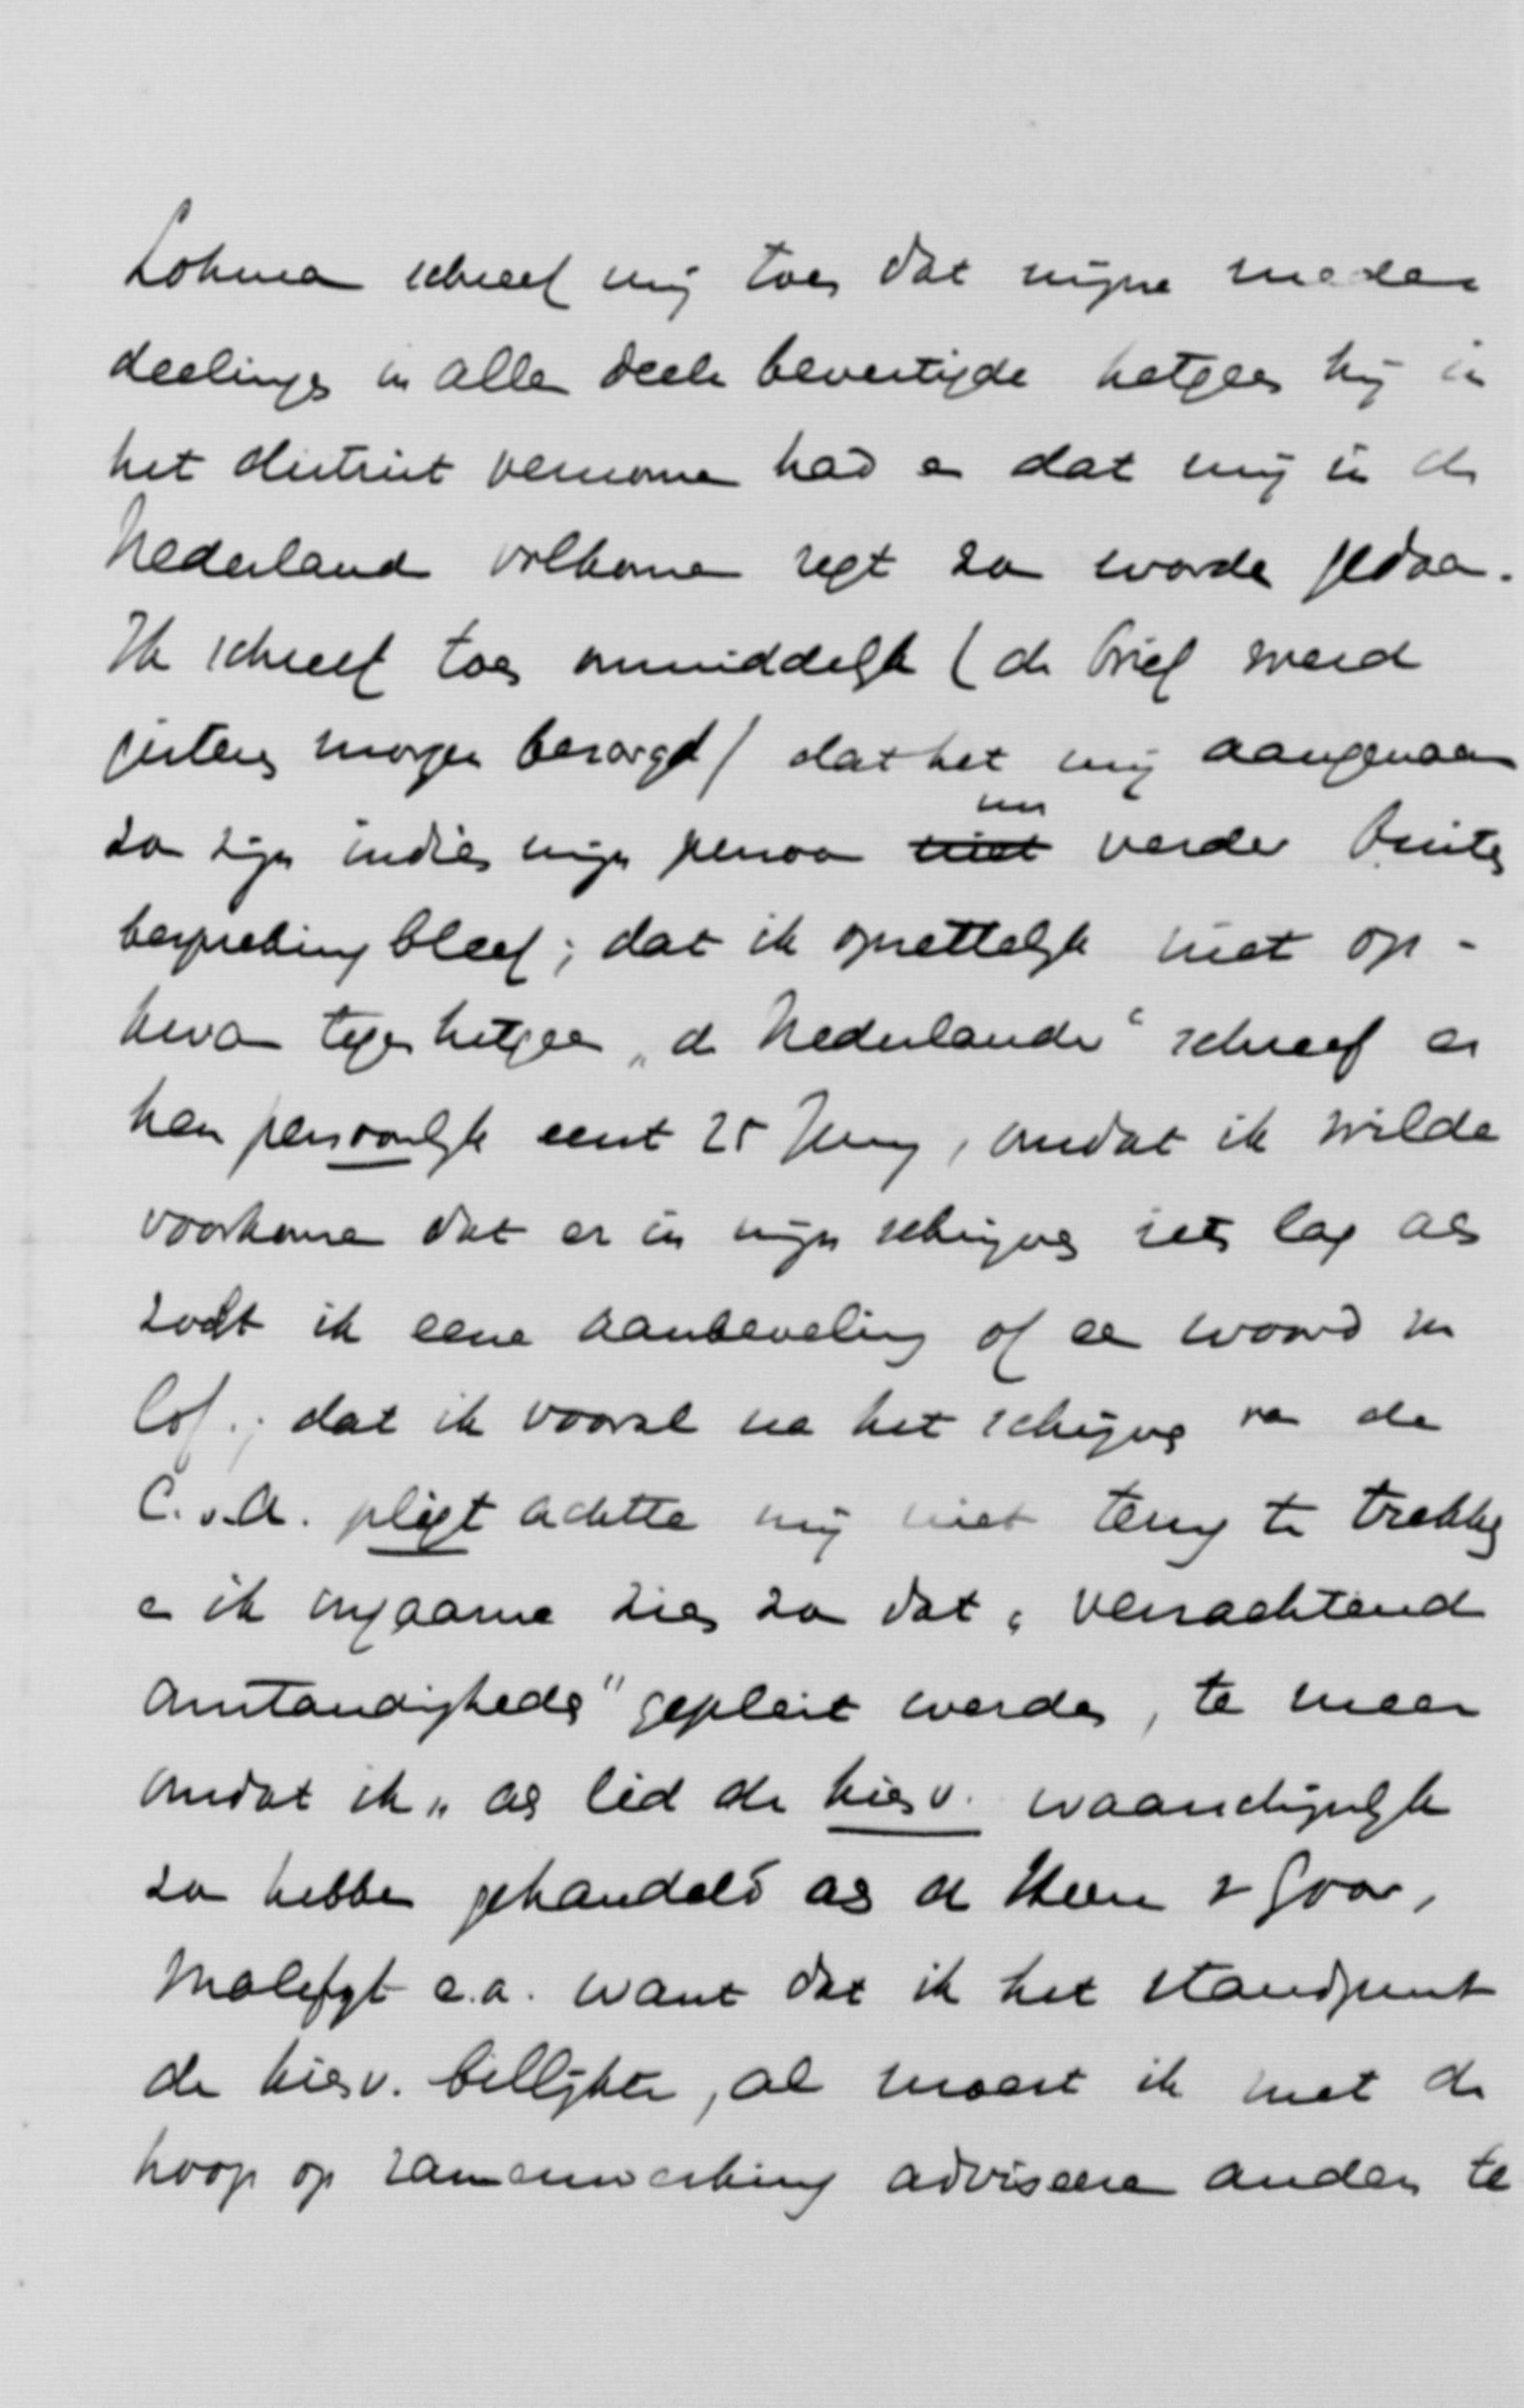 Lohman schreef mij toen dat mijne mede
deelingen in alle deele bevestigde hetgeen hij in
het district vernomen had en dat mij in de
Nederland volkomen regt zou worden gedaan.
Ik schreef toen onmiddelijk (de brief werd
gisteren morgen bezorgd) dat het mij aangenaam
zou zijn indien mijn persoon nu verder buiten
bespreking bleef; dat ik opzettelijk niet op-
kwam tegen hetgeen „de Nederlander" schreef en
hem persoonlijk eerst 25 Juny, omdat ik wilde
voorkomen dat er in mijn schrijven iets lag als
zocht ik eene aanbeveling of een woord van
lof; dat ik vooral na het schrijven van de
C.v.A. pligt achtte mij niet terug te trekken
en ik ongaarne zien zou dat „verzachtende
omstandigheden" gepleit werden, te meer
omdat ik „als lid der kiesv. waarschijnlijk
zou hebben gehandeld als de Heeren v Goor,
Molefijt e.a. want dat ik het standpunt
der kiesv. billijkte, al moest ik met de
hoop op zamenwerking adviseeren anders te